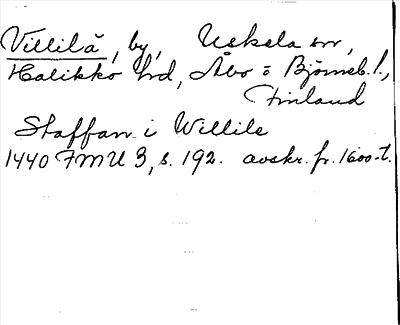 Villilä, by, Uskela sn,
Halikko hd, Åbo o Björneb. l.,
Finland
Staffan i Willile
1440 FMU 3, s. 192. avskr. fr. 1600-t.